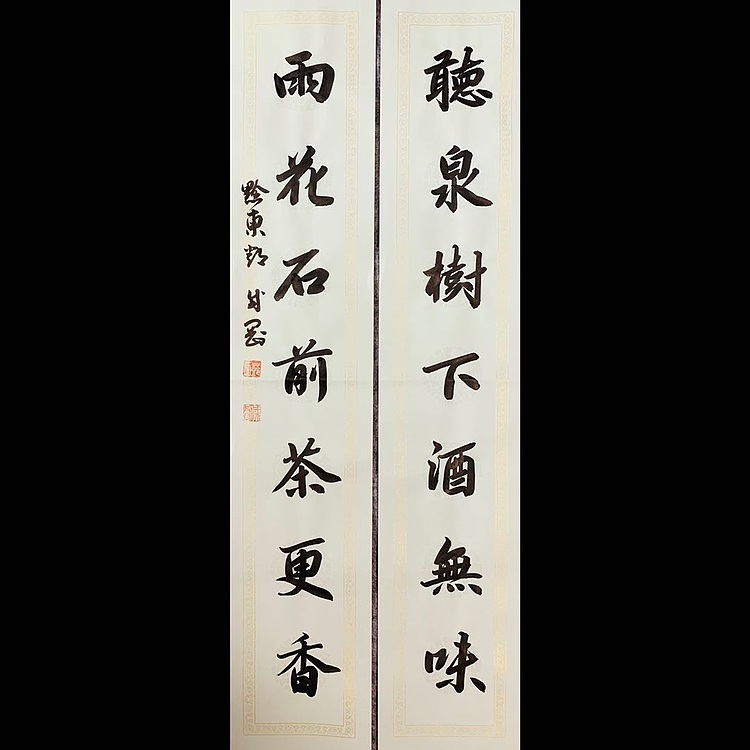 聽泉樹下酒無味
雨花石前茶更香
黔東鄧